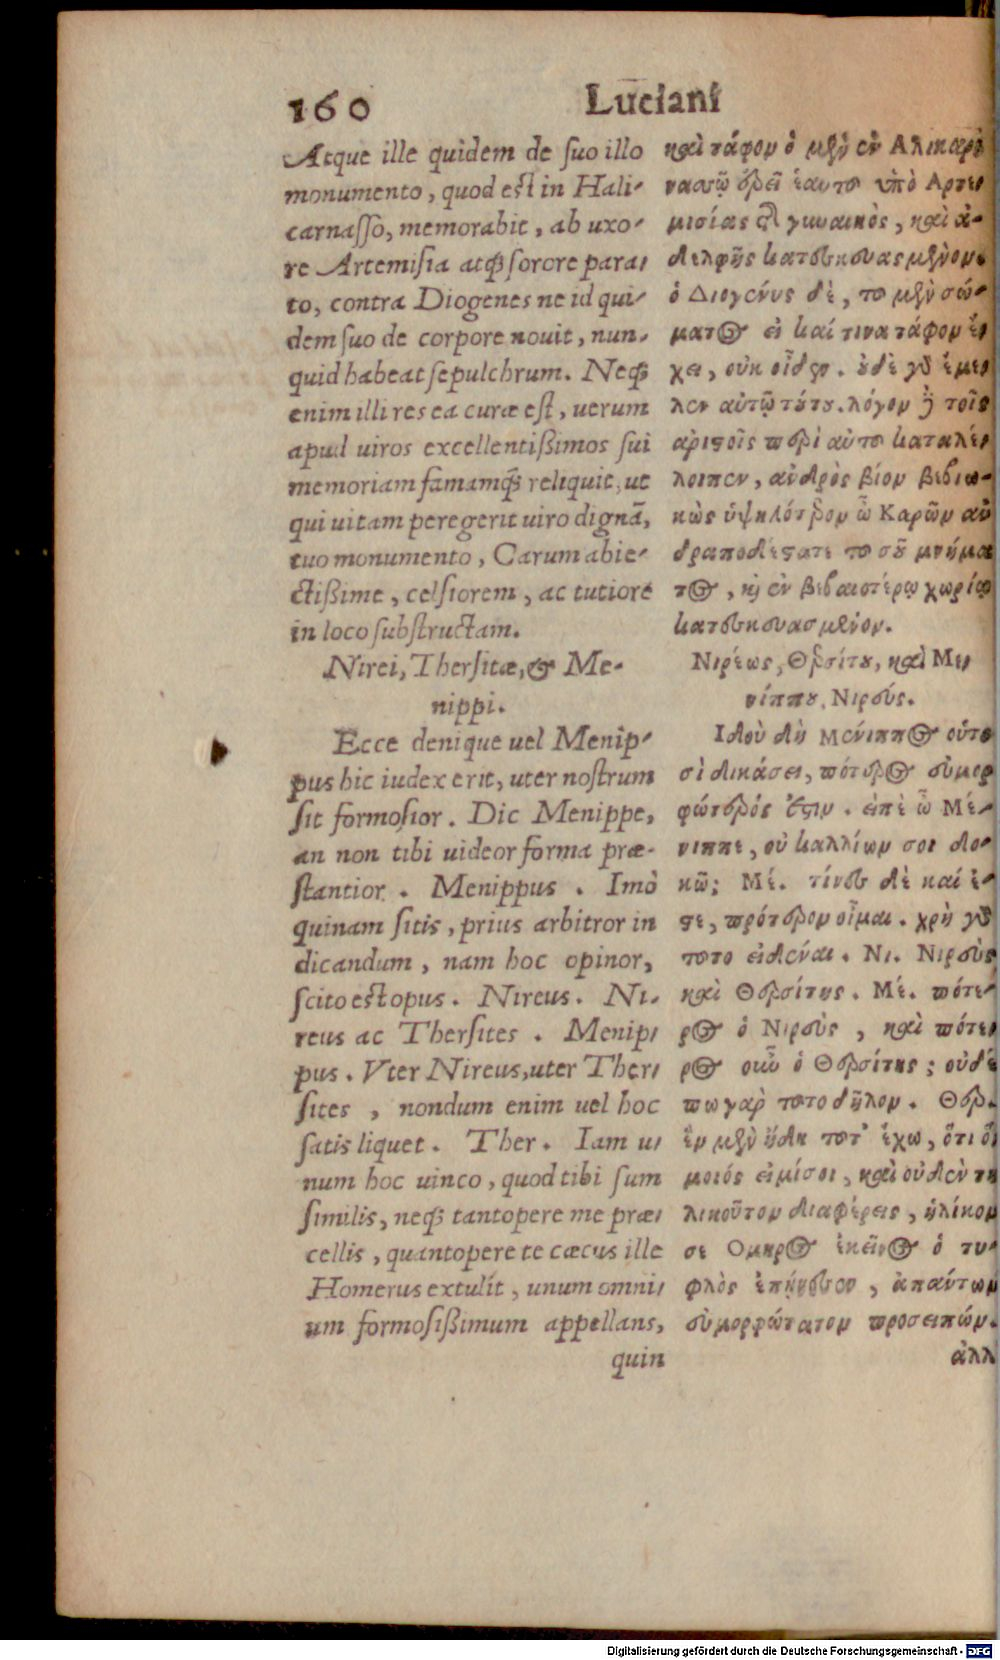 160 Luciani
Atque ille quidem de suo illo
monumento, quod est in Hali-
carnasso, memorabit, ab uxo-
re Artemisia atq; sorore para-
to, contra Diogenes ne id qui-
dem suo de corpore novit, nun-
quid habeat sepulchrum. Neq;
enim illi res ea curæ est, uerum
apud uiros excellentißimos sui
memoriam famamq; reliquit, ut
qui uitam peregerit uiro dignã,
tuo monumento, Carum abie-
ctißime, celsiorem, ac tutiore
in loco substructam.
Nirei, Thersitæ, & Me-
nippi.
Ecce denique uel Menip-
pus hic iudex erit, uter nostrum
sit formosior. Dic Menippe,
an non tibi uideor forma præ-
stantior. Menippus. Imò
quinam sitis, prius arbitror in
dicandum, nam hoc opinor,
scito est opus. Nireus. Ni-
reus ac Thersites. Menip-
pus. Vter Nireus, uter Ther-
sites, nondum enim uel hoc
satis liquet. Ther. Iam u-
num hoc uinco, quod tibi sum
similis, neq; tantopere me præ-
cellis, quantopere te cæcus ille
Homerus extulit, unum omni-
um formosißimum appellans,
quin
καὶ τάφου ὁ μὲν ἐν Αλικαρ
νασσῷ ἐρεῖ ἑαυτοῦ ὑπὸ Αρτε-
μισίας τῆς γυναικὸς, καὶ ἀ-
δελφῆς κατεσκευασμένου.
ὁ Διογένης δὲ, τοῦ μὲν σώ-
ματος εἰ καί τινα τάφον ἔ-
χει, οὐκ οἶδεν. οὐδὲ γὰρ ἔμε-
λεν αὐτῷ τούτου. λόγον δὲ τοῖς
ἀρίστοις περὶ αὐτοῦ καταλέ-
λοιπεν, ἀνδρὸς βίον βεβιω-
κὼς ὑψηλότερον ὦ Καρῶν ἀν
δραποδέστατε τοῦ σοῦ μνήμα
τος, καὶ ἐν βεβαιοτέρῳ χωρίῳ
κατεσκευασμένον.
Νιρέως, Θερσίτου, καὶ Με-
νίππου, Νιρεύς.
Ιδοὺ δὴ Μένιππος οὑτο
σὶ δικάσει, πότερος εὐμορ
φώτερός ἐστιν. εἰπὲ ὦ Μέ-
νιππε, οὐ καλλίων σοι δο-
κῶ; Μέ. τίνες δὲ καί ἐ-
στε, πρότερον οἶμαι. χρὴ γὰρ
τοῦτο εἰδέναι. Νι. Νιρεὺς
καὶ Θερσίτης. Μέ. πότε-
ρος ὁ Νιρεὺς, καὶ πότε-
ρος οὖν ὁ Θερσίτης; οὐδέ
πω γὰρ τοῦτο δῆλον. Θερ.
ἓν μὲν ἤδη τοῦτ' ἔχω, ὅτι ὅ
μοιός εἰμί σοι, καὶ οὐδὲν τη
λικοῦτον διαφέρεις, ἡλίκον
σε Ομηρος ἐκεῖνος ὁ τυ-
φλὸς ἐπῄνεσεν, ἁπάντων
εὐμορφώτατον προσειπών.
ἀλλ
Digitalisierung gefördert durch die Deutsche Forschungsgemeinschaft - DFG